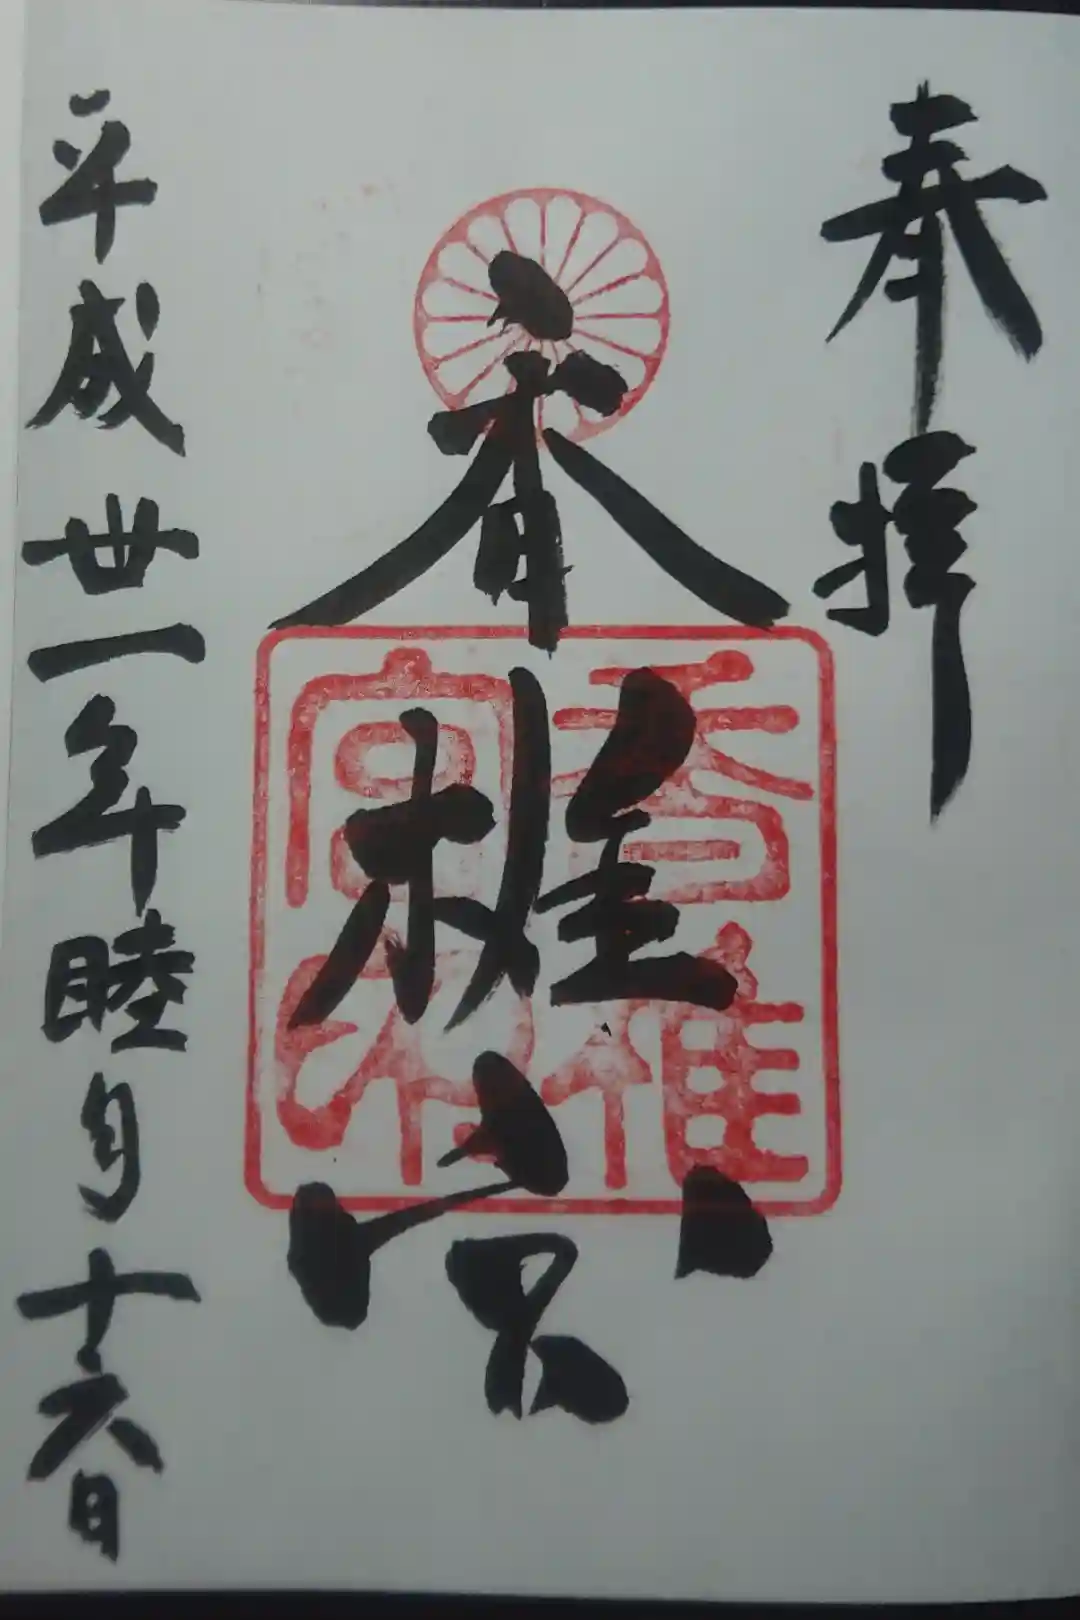 奉拝
香椎宮
香椎宮印
平成丗一年睦月十六日